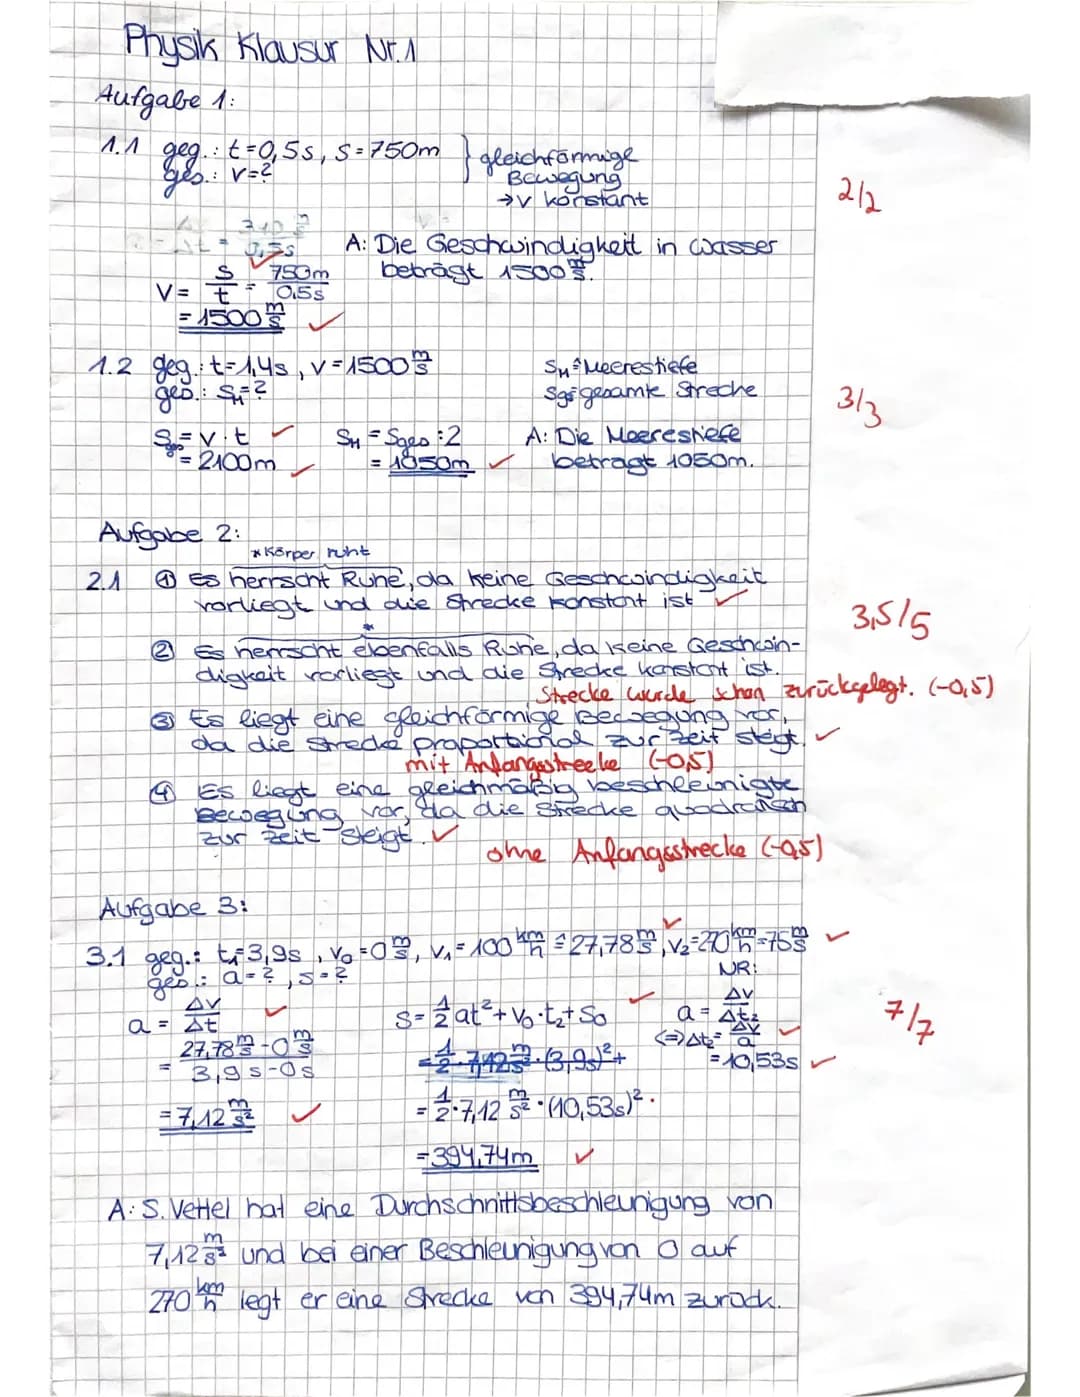 Physik Klausur Nr.1
Aufgabe 1:
1.1 geg.: t=0,5s, s=750m } gleichförmige
ges.: v=? Bewegung
→v konstant
2/2
A: Die Geschwindigkeit in wasser
beträgt 1500 m/s.
v = s/t = 750m/0,5s
= 1500 m/s ✓
1.2 geg.: t=1,4s, v=1500 m/s
ges.: S_M=?
S_M ≙ Meerestiefe
S_ges gesamte Strecke
3/3
S_ges = v·t ✓ S_M = S_ges :2
= 2100m ✓ = 1050m ✓
A: Die Meerestiefe
beträgt 1050m.
Aufgabe 2:
*Körper ruht
2.1 ① Es herrscht Ruhe, da keine Geschwindigkeit
vorliegt und die Strecke konstant ist ✓
3,5/5
*
② Es herrscht ebenfalls Ruhe, da keine Geschwin-
digkeit vorliegt und die Strecke konstant ist.
Strecke wurde schon zurückgelegt. (-0,5)
③ Es liegt eine gleichförmige Bewegung vor,
da die Strecke proportional zur Zeit steigt. ✓
mit Anfangsstrecke (-0,5)
④ Es liegt eine gleichmäßig beschleunigte
Bewegung vor, da die Strecke quadratisch
zur Zeit steigt. ✓
ohne Anfangsstrecke (-0,5)
Aufgabe 3:
3.1 geg.: t₁=3,9s, v₀=0 m/s, v₁=100 km/h ≙ 27,78 m/s ✓, v₂=270 km/h=75 m/s ✓
ges.: a=?, s=?
NR:
a = Δv/Δt ✓
= (27,78 m/s - 0 m/s)/(3,9s-0s)
= 7,12 m/s² ✓
s = 1/2 at² + v₀·t₂ + s₀ ✓
= 1/2 · 7,12 m/s² · (3,9s)² +
= 1/2 · 7,12 m/s² · (10,53s)² ·
= 394,74m ✓
a = Δv/Δt₂
<=> Δt₂ = Δv/a ✓
= 10,53s ✓
7/7
A: S. Vettel hat eine Durchschnittsbeschleunigung von
7,12 m/s² und bei einer Beschleunigung von 0 auf
270 km/h legt er eine Strecke von 394,74m zurück.